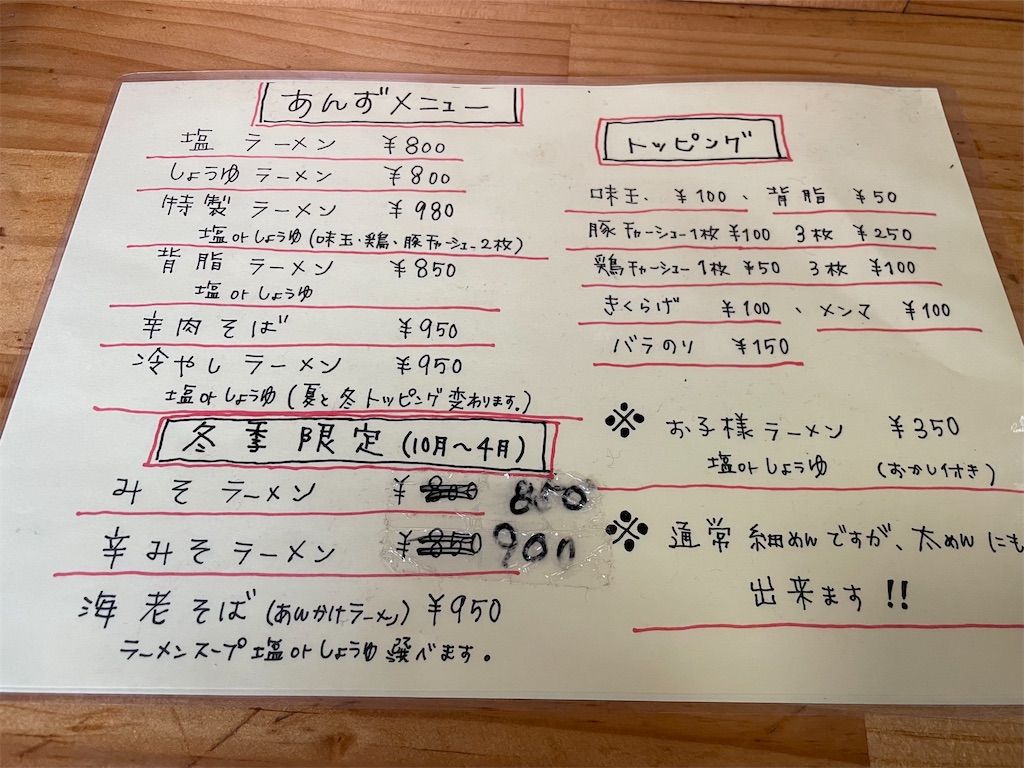 あんずメニュー
塩 ラーメン ¥800
しょうゆ ラーメン ¥800
特製 ラーメン ¥980
塩orしょうゆ(味玉、鶏、豚チャーシュー2枚)
背脂 ラーメン ¥850
塩orしょうゆ
辛肉そば ¥950
冷やしラーメン ¥950
塩orしょうゆ(夏と冬トッピング変わります。)
冬季限定(10月〜4月)
みそラーメン ¥800 850
辛みそラーメン ¥850 900
海老そば(あんかけラーメン) ¥950
ラーメンスープ塩orしょうゆ選べます。
トッピング
味玉、 ¥100 、 背脂 ¥50
豚チャーシュー1枚 ¥100 3枚 ¥250
鶏チャーシュー1枚 ¥50 3枚 ¥100
きくらげ ¥100 、メンマ ¥100
バラのり ¥150
※ お子様ラーメン ¥350
塩orしょうゆ (おかし付き)
※ 通常細めんですが、太めんにも
出来ます!!